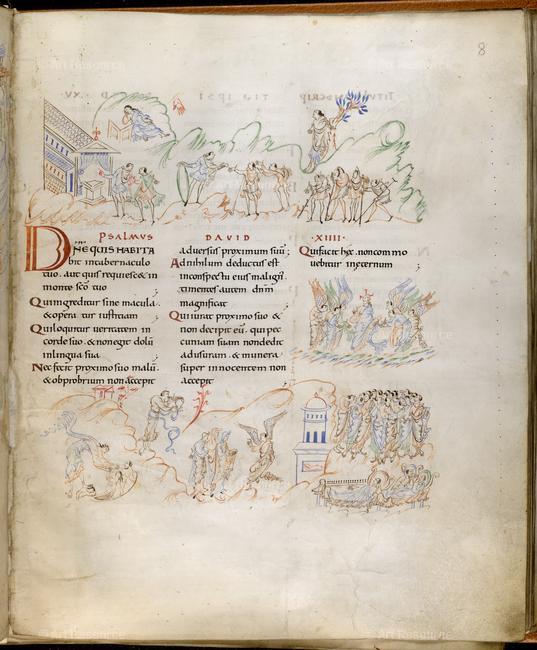 8
PSALMVS DAVID ·XIIII·
DNE QUIS HABITA
bit intabernaculo
tuo · aut quis requiescet in
monte sco tuo
Qui ingreditur sine macula ·
& opera tur iustitiam
Qui loquitur veritatem in
corde suo · & non egit dolũ
in lingua sua
Nec fecit proximo suo malũ ·
& obprobrium non accepit
adversus proximum suũ
Ad nihilum deductus est
in conspectu eius malign'
timentes autem dnm
magnificat
Qui iurat proximo suo &
non decipit eũ · qui pec
cuniam suam non dedit
ad usuram · & munera
super innocentem non
accepit
Qui facit hec · non commo
vebitur in eternum